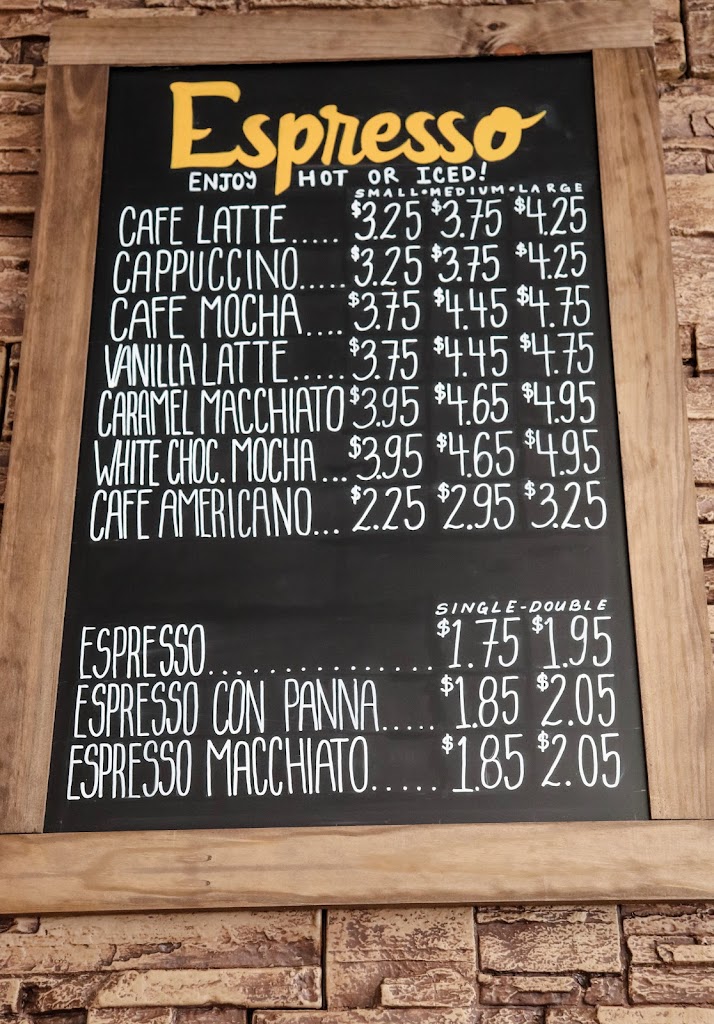 Espresso
ENJOY HOT OR ICED!
SMALL • MEDIUM • LARGE
CAFE LATTE..... $3.25 $3.75 $4.25
CAPPUCCINO..... $3.25 $3.75 $4.25
CAFE MOCHA.... $3.75 $4.45 $4.75
VANILLA LATTE..... $3.75 $4.45 $4.75
CARAMEL MACCHIATO $3.95 $4.65 $4.95
WHITE CHOC. MOCHA... $3.95 $4.65 $4.95
CAFE AMERICANO... $2.25 $2.95 $3.25
SINGLE - DOUBLE
ESPRESSO............... $1.75 $1.95
ESPRESSO CON PANNA..... $1.85 $2.05
ESPRESSO MACCHIATO..... $1.85 $2.05